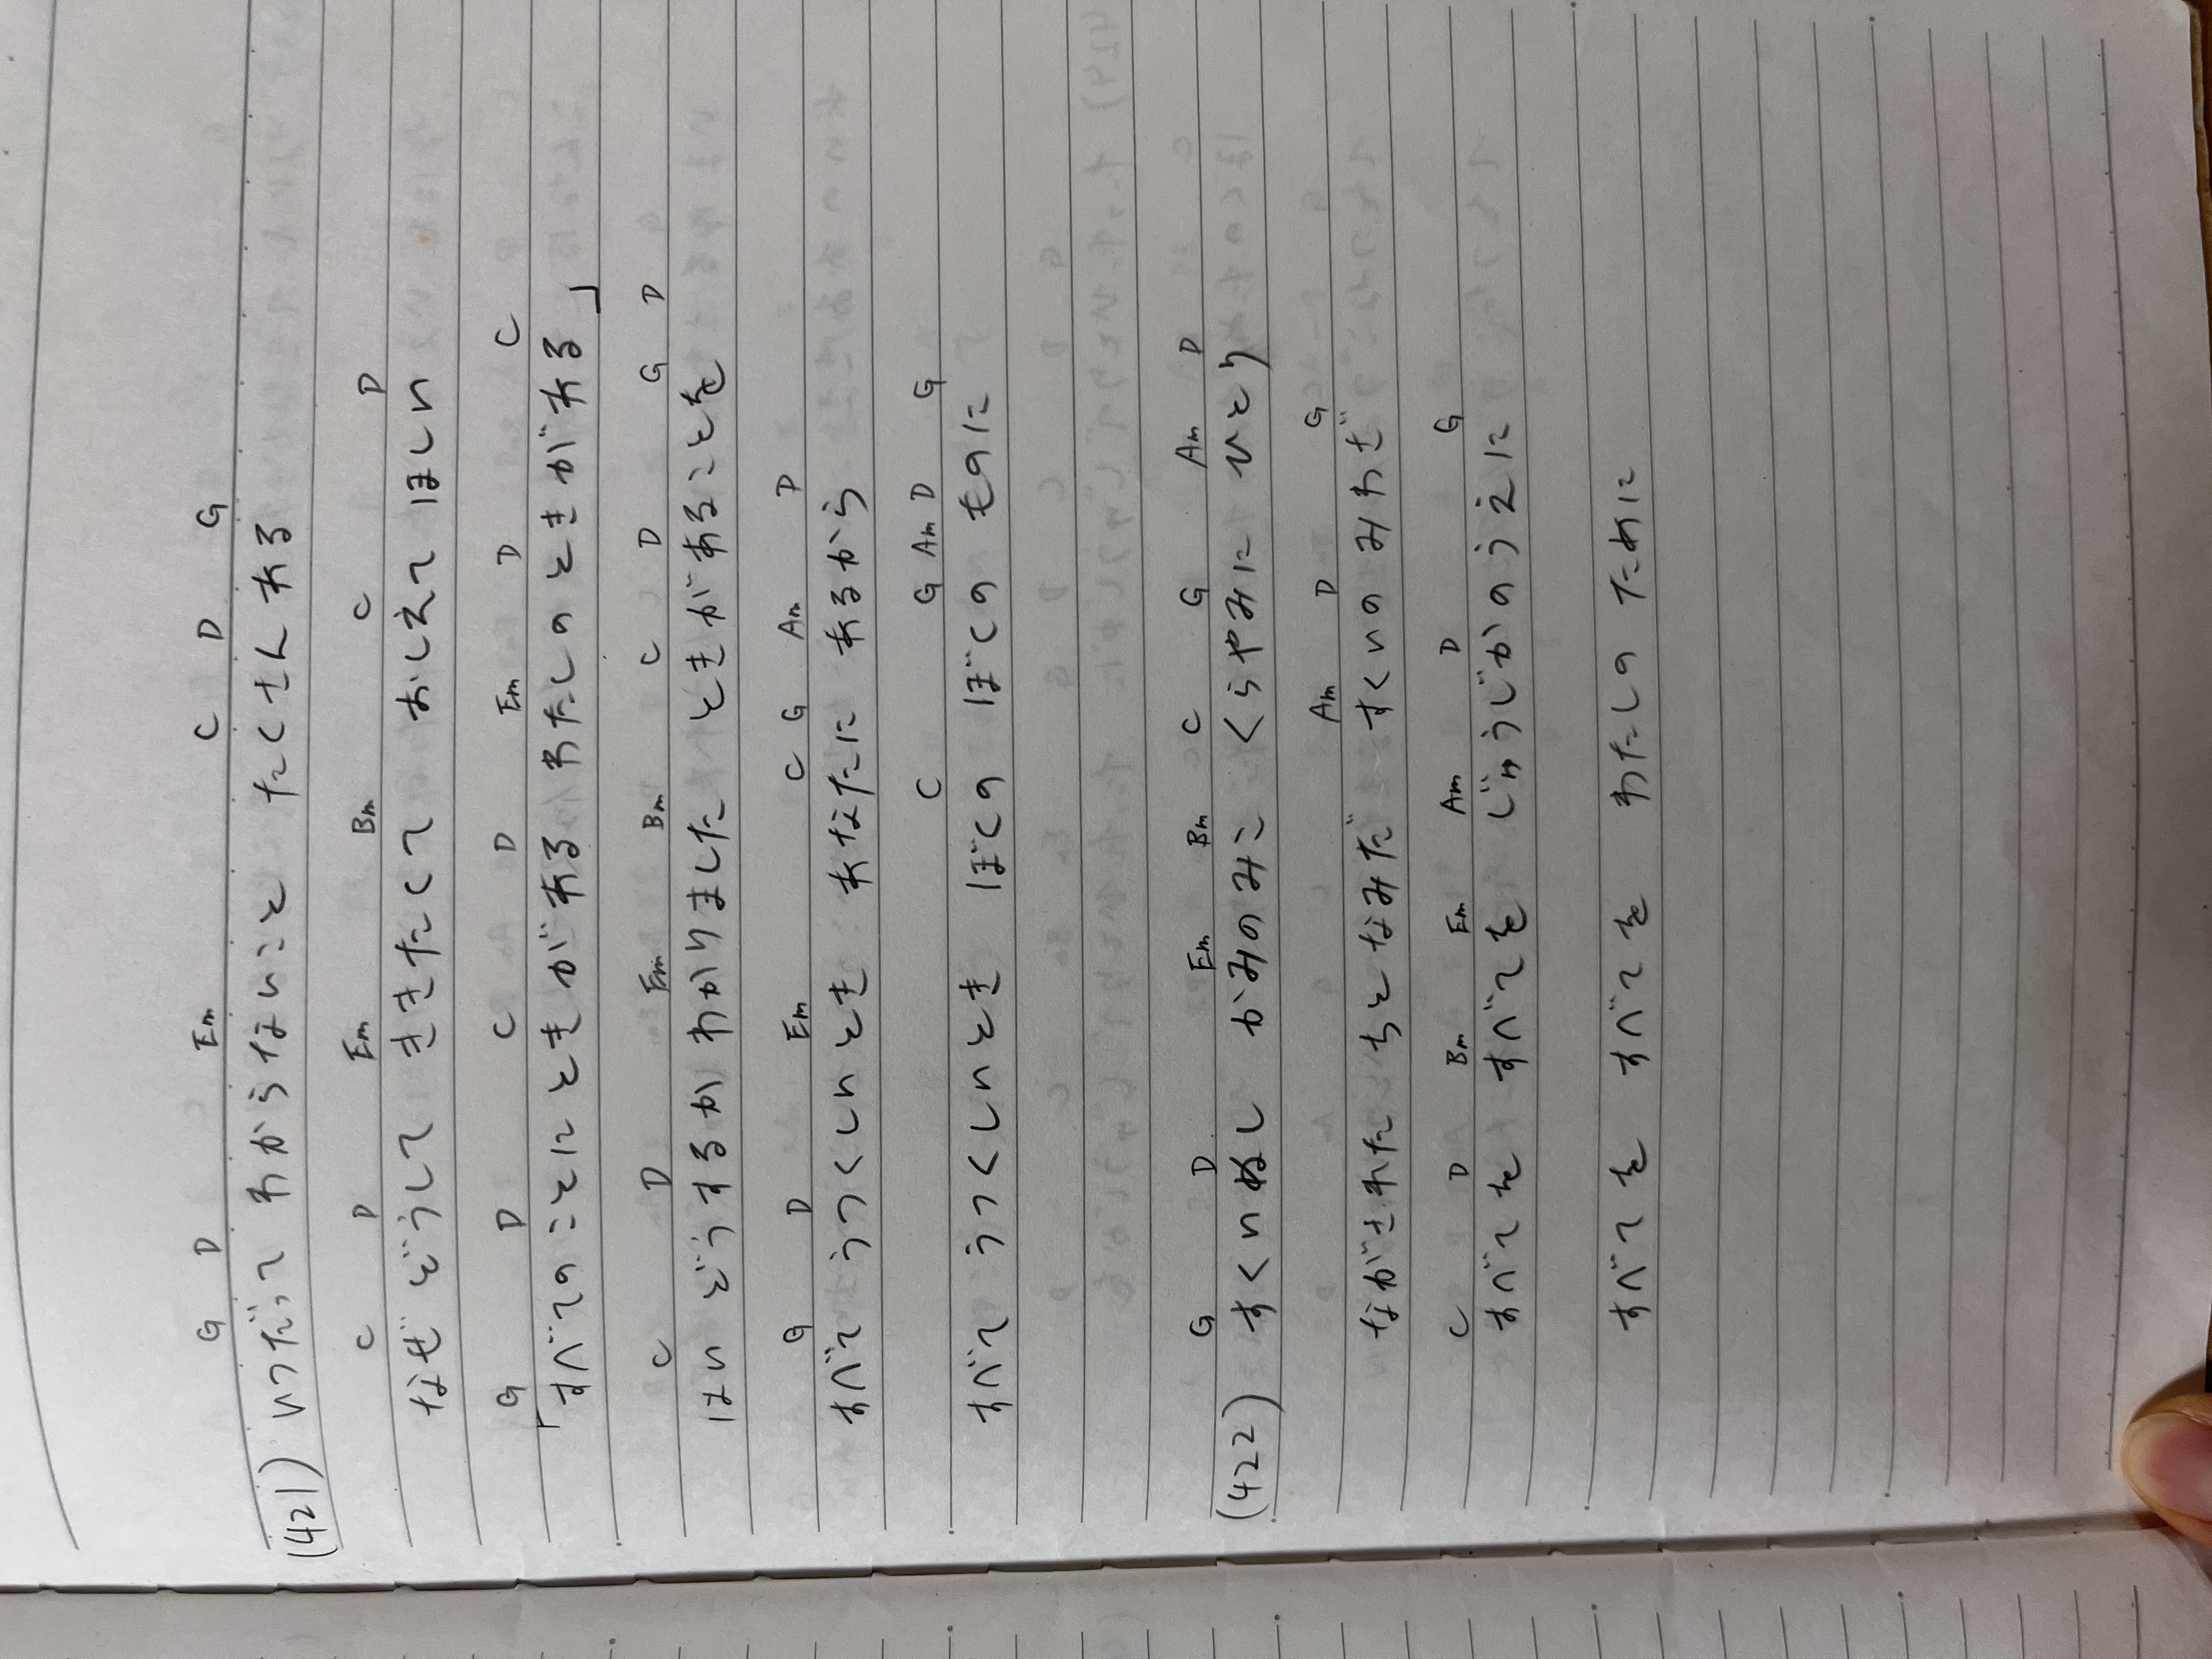 G D Em C D G
(421) いつだって わからないこと たくさんある
C D Em Bm C D
なぜ どうして ききたくて おしえて ほしい
G D C D Em D C
「すべてのことに ときが ある わたしの ときが ある」
C D Em Bm C D G D
はい どうするか わかりました ときが あることを
G D Em C G Am D
すべて うつくしい とき あなたに あるから
C G Am D G
すべて うつくしい とき ぼくの ぼくの ものに
G D Em Bm C G Am D
(422) すくいぬし かみのみこ くらやみに ひとり
Am D G
ながされた ちと なみだ すくいの みわざ
C D Bm Em Am D G
すべてを すべてを じゅうじかの うえに
すべてを すべてを わたしの ために